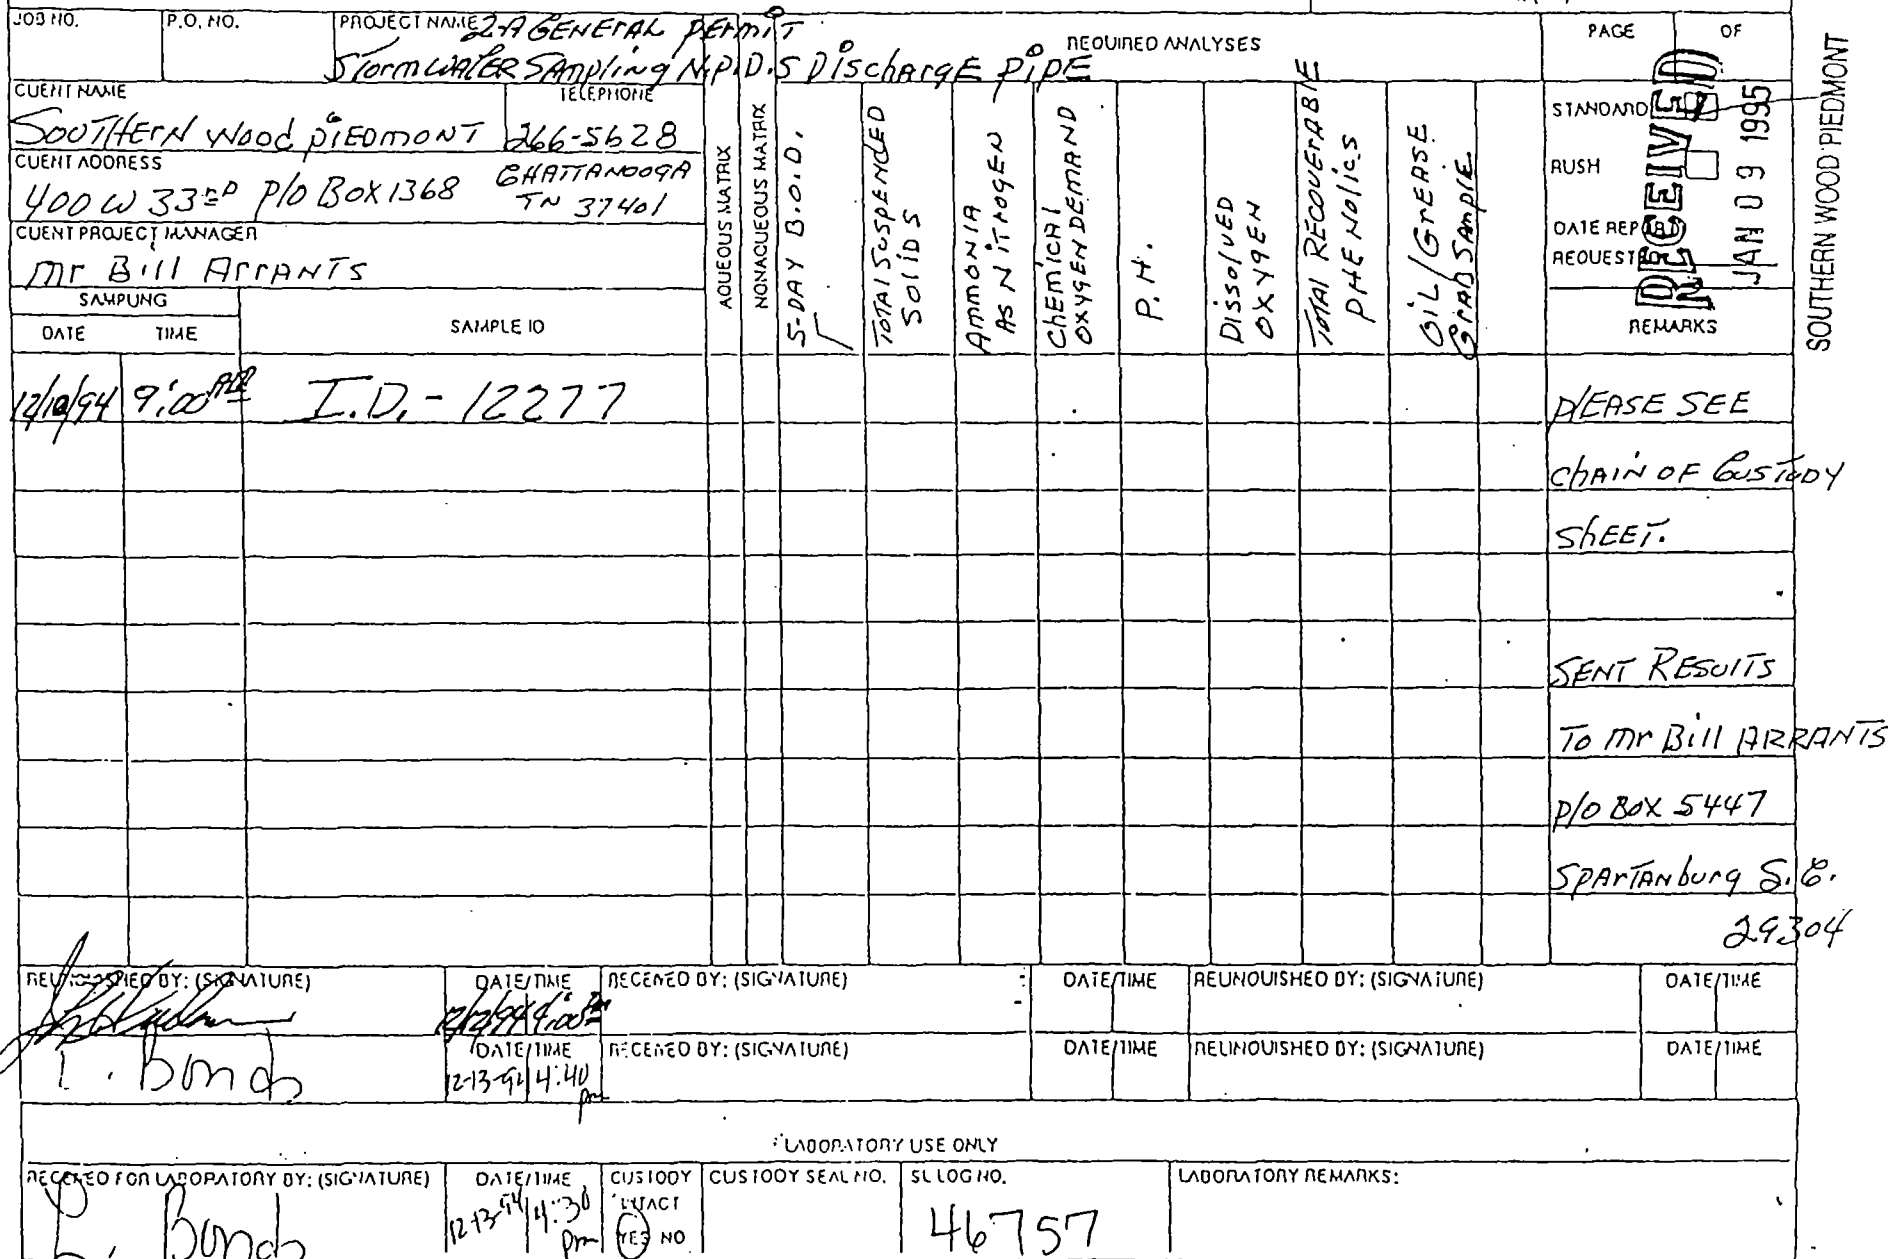 JOB NO.
P.O. NO.
PROJECT NAME 2-A GENERAL PERMIT
STORMWATER SAMPLING N.P.D.S DISCHARGE PIPE
REQUIRED ANALYSES
PAGE OF
CLIENT NAME
SOUTHERN WOOD PIEDMONT
TELEPHONE
266-5628
CLIENT ADDRESS
400 W 33RD P/O BOX 1368 CHATTANOOGA
TN 37401
CLIENT PROJECT MANAGER
Mr Bill ARRANTS
SAMPLING
DATE TIME
SAMPLE ID
AQUEOUS MATRIX
NONAQUEOUS MATRIX
5-DAY B.O.D.
TOTAL SUSPENDED
SOLIDS
AMMONIA
AS NITROGEN
CHEMICAL
OXYGEN DEMAND
P.H.
DISSOLVED
OXYGEN
TOTAL RECOVERABLE
PHENOLICS
OIL/GREASE
GRAB SAMPLE
STANDARD
RUSH
DATE REPORT
REQUESTED
RECEIVED
JAN 09 1995
SOUTHERN WOOD PIEDMONT
REMARKS
12/10/94 9:00 I.D.- 12277
PLEASE SEE
CHAIN OF CUSTODY
SHEET.
SENT RESULTS
TO Mr Bill ARRANTS
P/O BOX 5447
SPARTANBURG S.C.
29304
RELINQUISHED BY: (SIGNATURE)
DATE/TIME
12/12/94 4:00 PM
RECEIVED BY: (SIGNATURE)
DATE/TIME
RELINQUISHED BY: (SIGNATURE)
DATE/TIME
L. Bonds
DATE/TIME
12-13-94 4:40
pm
RECEIVED BY: (SIGNATURE)
DATE/TIME
RELINQUISHED BY: (SIGNATURE)
DATE/TIME
LABORATORY USE ONLY
RECEIVED FOR LABORATORY BY: (SIGNATURE)
L. Bonds
DATE/TIME
12-13-94 4:30
pm
CUSTODY
INTACT
YES NO
CUSTODY SEAL NO.
SL LOG NO.
46757
LABORATORY REMARKS: